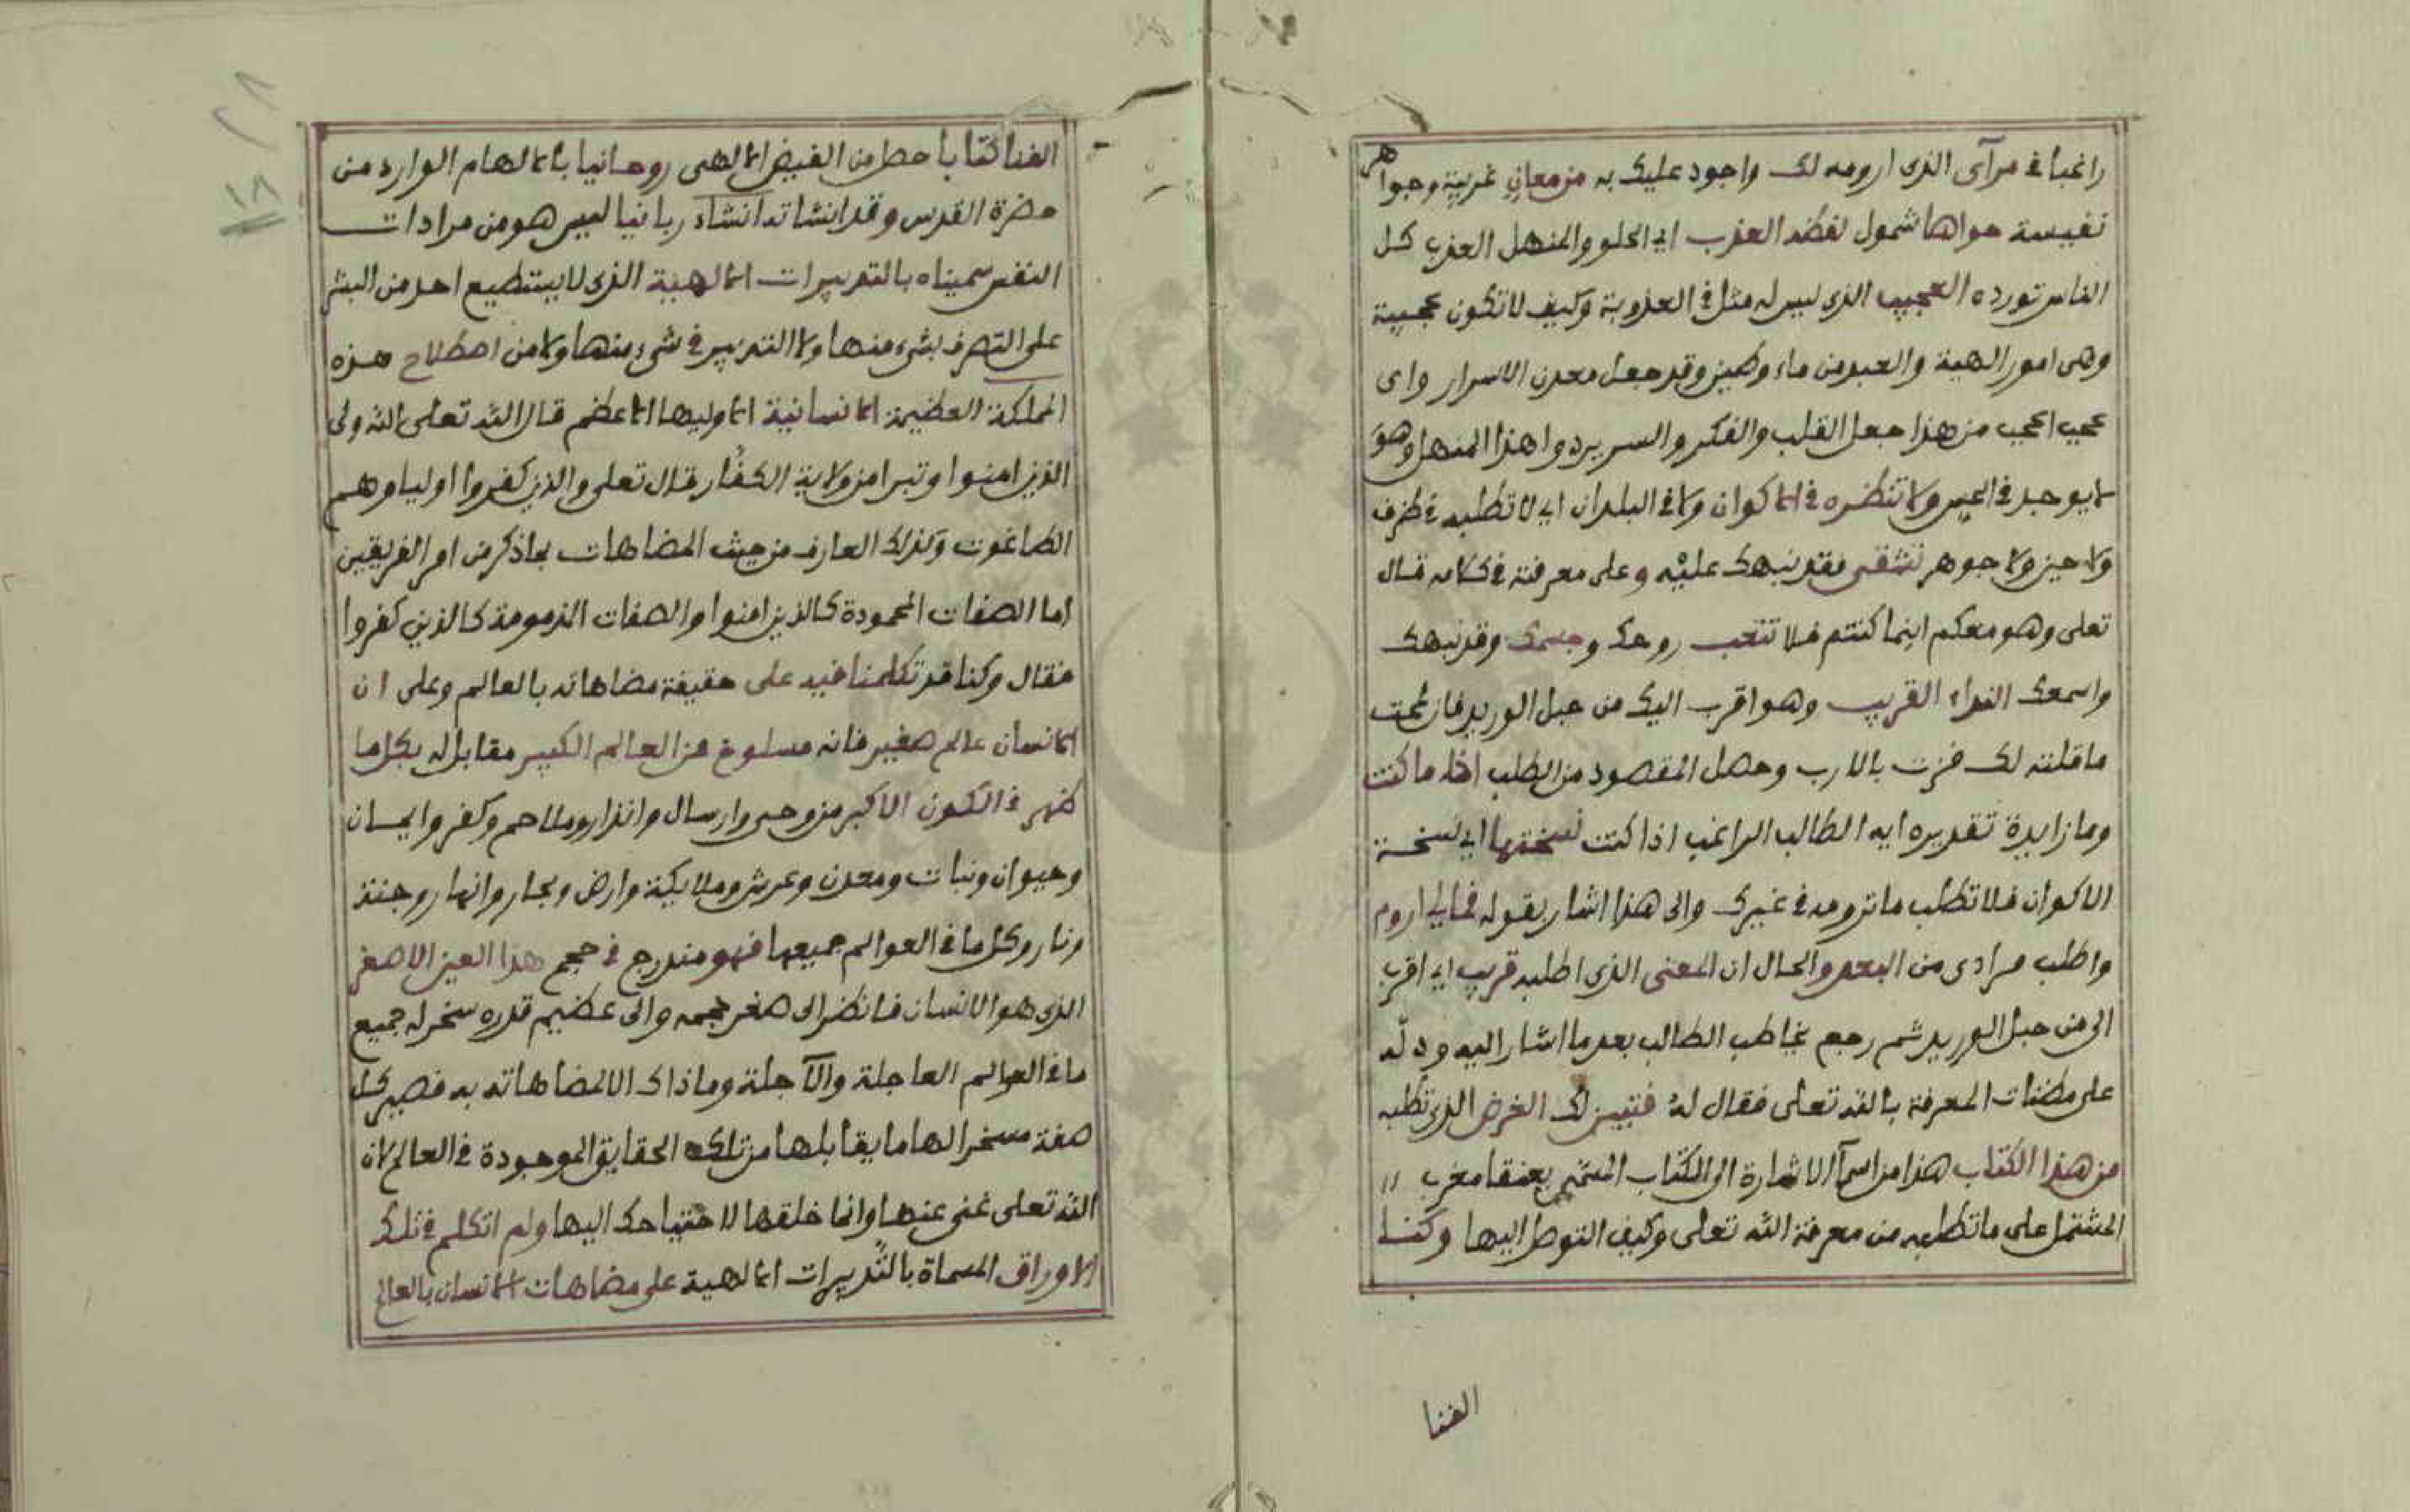 راغبا في مرآى الذى ارومه لك واجود عليك به من معاني غريبة وجواهر
نفيسة حواها شمول لفظه العذب اي الحلو والمنهل العذب كل
الناس تورده العجيب الذى ليس له مثل في العذوبة وكيف لا تكون عجيبة
وهى امور الهية والعبد من ماء وطين وقد جعل معدن الاسرار واى
عجب اعجب من هذا جعل القلب والفكر والسر يردوا هذا المنهل وهو
لا يوجد في العين ولا تنظره في الاكوان ولا في البلدان اي لا تطلبه في ظرف
ولا حيز ولا جوهر فقد نبهك عليه وعلى معرفته في كلامه قال
تعلى وهو معكم اينما كنتم فلا تتعب روحك وجسمك وقد نبهك
واسمعك النداء القريب وهو اقرب اليك من حبل الوريد فان
ما قلته لك فزت بالارب وحصل المقصود من الطلب اذا ما كنت
وما زايدة تقديره ايه الطالب الراغب اذا كنت نسختها اي نسخة
الاكوان فلا تطلب ما ترومه في غيرك والى هذا اشار بقوله فما لي اروم
واطلب مرادى من البعد والحال ان المعنى الذى اطلبه قريب اي اقرب
الى من حبل الوريد ثم رجع يخاطب الطالب بعد ما اشار اليه ودله
على مظنات المعرفة بالله تعلى فقال له فتبين لك الغرض الذى تطلبه
من هذا الكتاب هذا من اسمآ الاشارة الى الكتاب المسمى بعنقا مغرب
المشتمل على ما تطلبه من معرفة الله تعلى وكيف التوصل اليها وكنا
الفنا
الفنا كتابا حصل من الفيض الالهى روحانيا بالالهام الوارد من
حضرة القدس وقد انشاته انشاء ربانيا ليس هو من مرادات
النفس سميناه بالتدبيرات الالهية الذى لا يستطيع احد من البشر
على التصرف بشيء منها ولا التدبير في شيء منها ولا من اصطلاح هذه
المملكة العظيمة الانسانية الا وليها الاعظم قال الله تعلى الله ولى
الذين امنوا وتبرا من ولاية الكفار قال تعلى والذين كفروا اولياوهم
الطاغوت وكذلك العارف من حيث المضاهات بما ذكر من امر الفريقين
اما الصفات المحمودة كالذين امنوا والصفات المذمومة كالذين كفروا
فقال وكنا قد تكلمنا فيه على حقيقة مضاهاته بالعالم وعلى ان
الانسان عالم صغير فانه مسلوخ من العالم الكبير مقابل له بكل ما
ظهر في الكون الاكبر من وحى وارسال وانذار وملاحم وكفر وايمان
وحيوان ونبات ومعدن وعرش وملايكة وارض وبحار وانهار وجنة
ونار وكل ما في العوالم جميعها فهو مندرج في حجم هذا العين الاصغر
الذى هو الانسان فانظر الى صغر حجمه والى عظيم قدره سخر له جميع
ما في العوالم العاجلة والآجلة وما ذاك الا لمضاهاته به فصير كل
صفة مسخرا لها ما يقابلها من تلك الحقايق الموجودة في العالم لان
الله تعلى غنى عنها وانما خلقها لاحتياجك اليها ولم اتكلم في تلك
الاوراق المسماة بالتدبيرات الالهية على مضاهات الانسان بالعالم